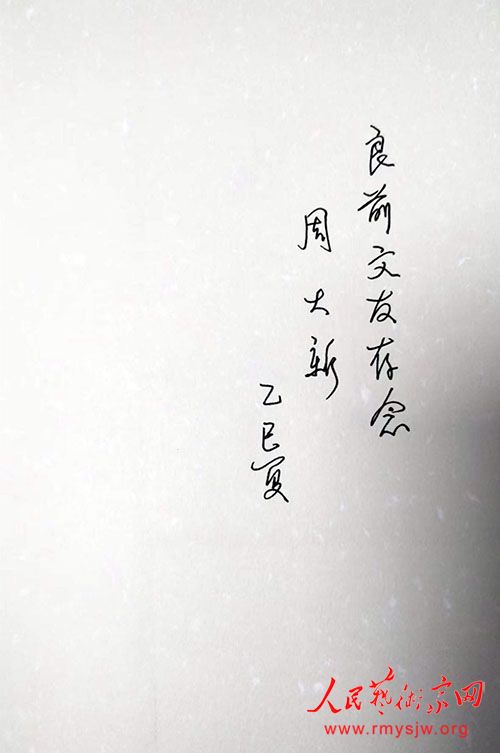 良前文友存念
周大新
乙巳夏
人民艺术家网
www.rmysjw.org